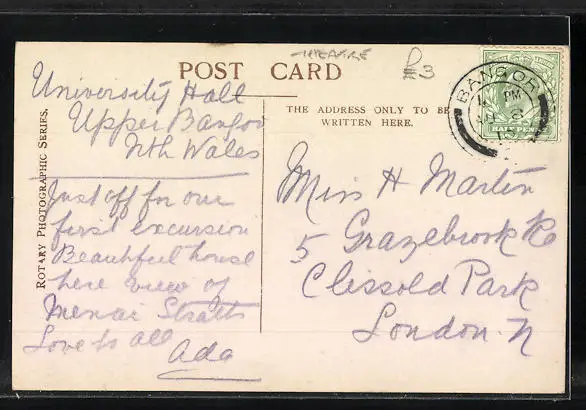 THEATRE
£3
POST CARD
THE ADDRESS ONLY TO BE
WRITTEN HERE.
ROTARY PHOTOGRAPHIC SERIES.
University Hall
Upper Bangor
Nth Wales
Just off for our
first excursion
Beautifull house
here view of
Menai Straits
Love to all
Ada
Miss H Martin
5 Grazebrook Rd
Clissold Park
London. N
BANGOR
PM
HALF PENNY